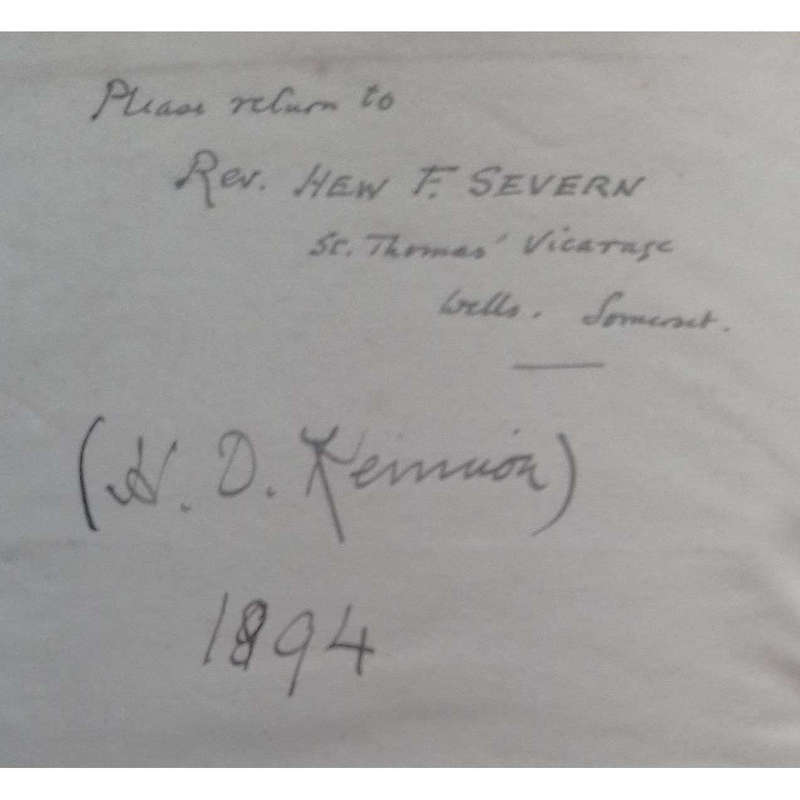 Please return to
Rev. HEW F. SEVERN
St. Thomas' Vicarage
Wells. Somerset.
(H. D. Kennion)
1894